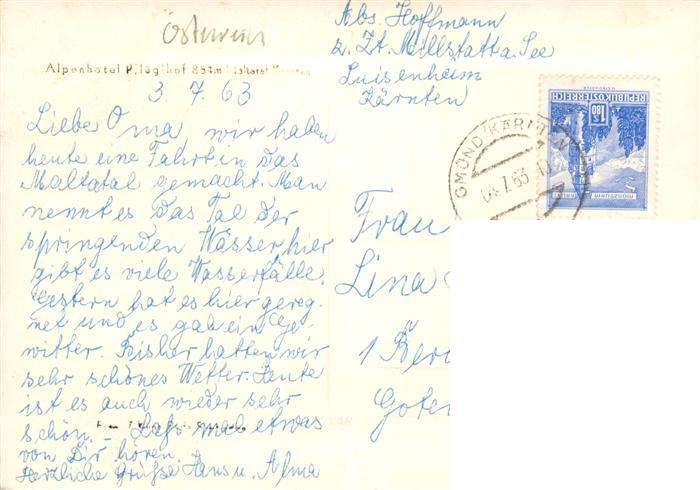 Österreich
Alpenhotel Pflüglhof 854 m Maltatal Kärnten
3.7.63
Liebe Oma, wir haben
heute eine Fahrt in das
Maltatal gemacht. Man
nennt es das Tal der
springenden Wasser, hier
gibt es viele Wasserfälle.
Gestern hat es hier gereg-
net und es gab ein Ge-
witter. Bisher hatten wir
sehr schönes Wetter. Heute
ist es auch wieder sehr
schön. – Laß mal etwas
von Dir hören.
Herzliche Grüße Hans u. Alma
Abs. Hoffmann
z. Zt. Millstatt a. See
Luisenheim
Kärnten
REPUBLIK ÖSTERREICH
S 1.80
GMÜND, KÄRNTEN
Frau
Lina
1 Ber
Goten